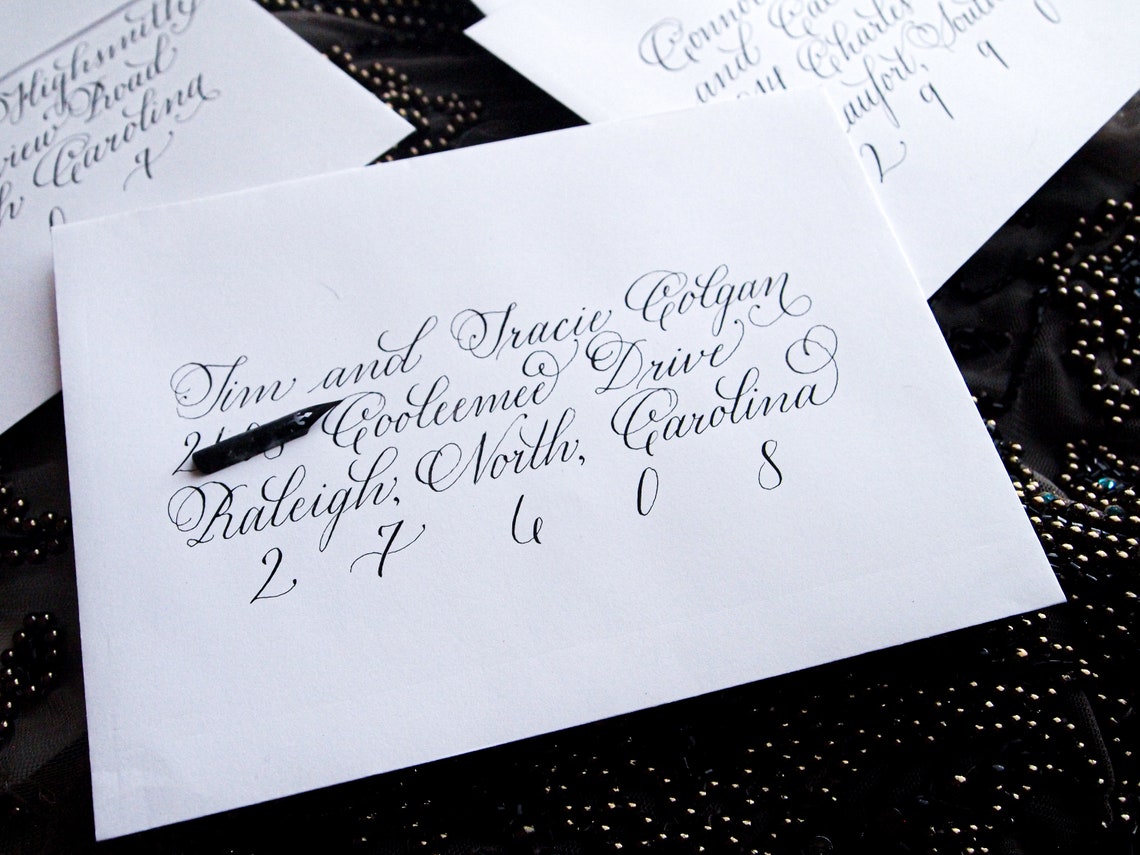 Highsmith
view Road
Carolina
7
Connor
and
Charles
South
2 9 9 0
Tim and Tracie Colgan
Cooleemee Drive
Raleigh, North, Carolina
2 7 6 0 8